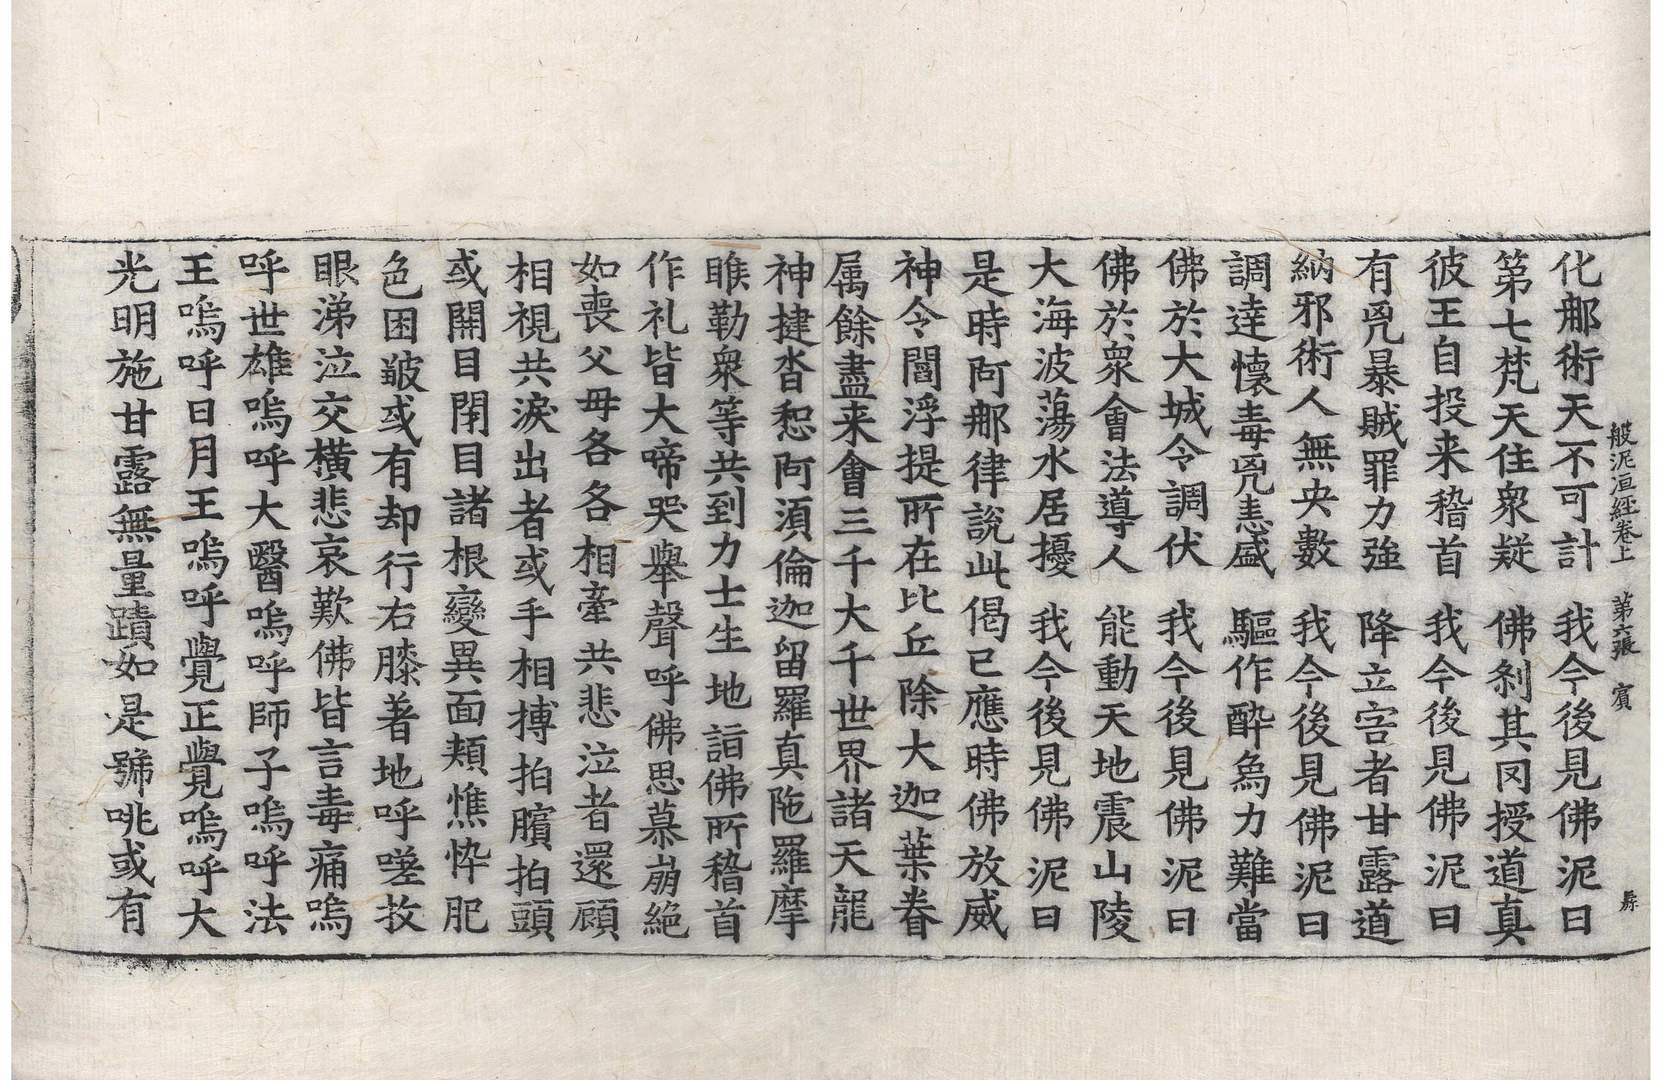 般泥洹經卷上 第六張 賓
化郍術天不可計 我今後見佛泥曰
第七梵天住衆疑 佛剎其冈授道真
彼王自投来稽首 我今後見佛泥曰
有兇暴賊罪力強 降立害者甘露道
納邪術人無央數 我今後見佛泥曰
調達懷毒兇恚盛 驅作醉為力難當
佛於大城令調伏 我今後見佛泥曰
佛於衆會法導人 能動天地震山陵
大海波蕩水居擾 我今後見佛泥曰
是時阿郍律說此偈已應時佛放威
神令閻浮提所在比丘除大迦葉眷
属餘盡来會三千大千世界諸天龍
神揵沓惒阿湏倫迦留羅真陁羅摩
睺勒衆等共到力士生地詣佛所稽首
作礼皆大啼哭舉聲呼佛思慕崩絕
如喪父母各各相牽共悲泣者還顧
相視共淚出者或手相搏拍臏拍頭
或開目閇目諸根變異面頰憔忰肥
色困皺或有却行右膝著地呼嗟抆
眼涕泣交橫悲哀歎佛皆言毒痛嗚
呼世雄嗚呼大醫嗚呼師子嗚呼法
王嗚呼日月王嗚呼覺正覺嗚呼大
光明施甘露無量蹟如是號咷或有